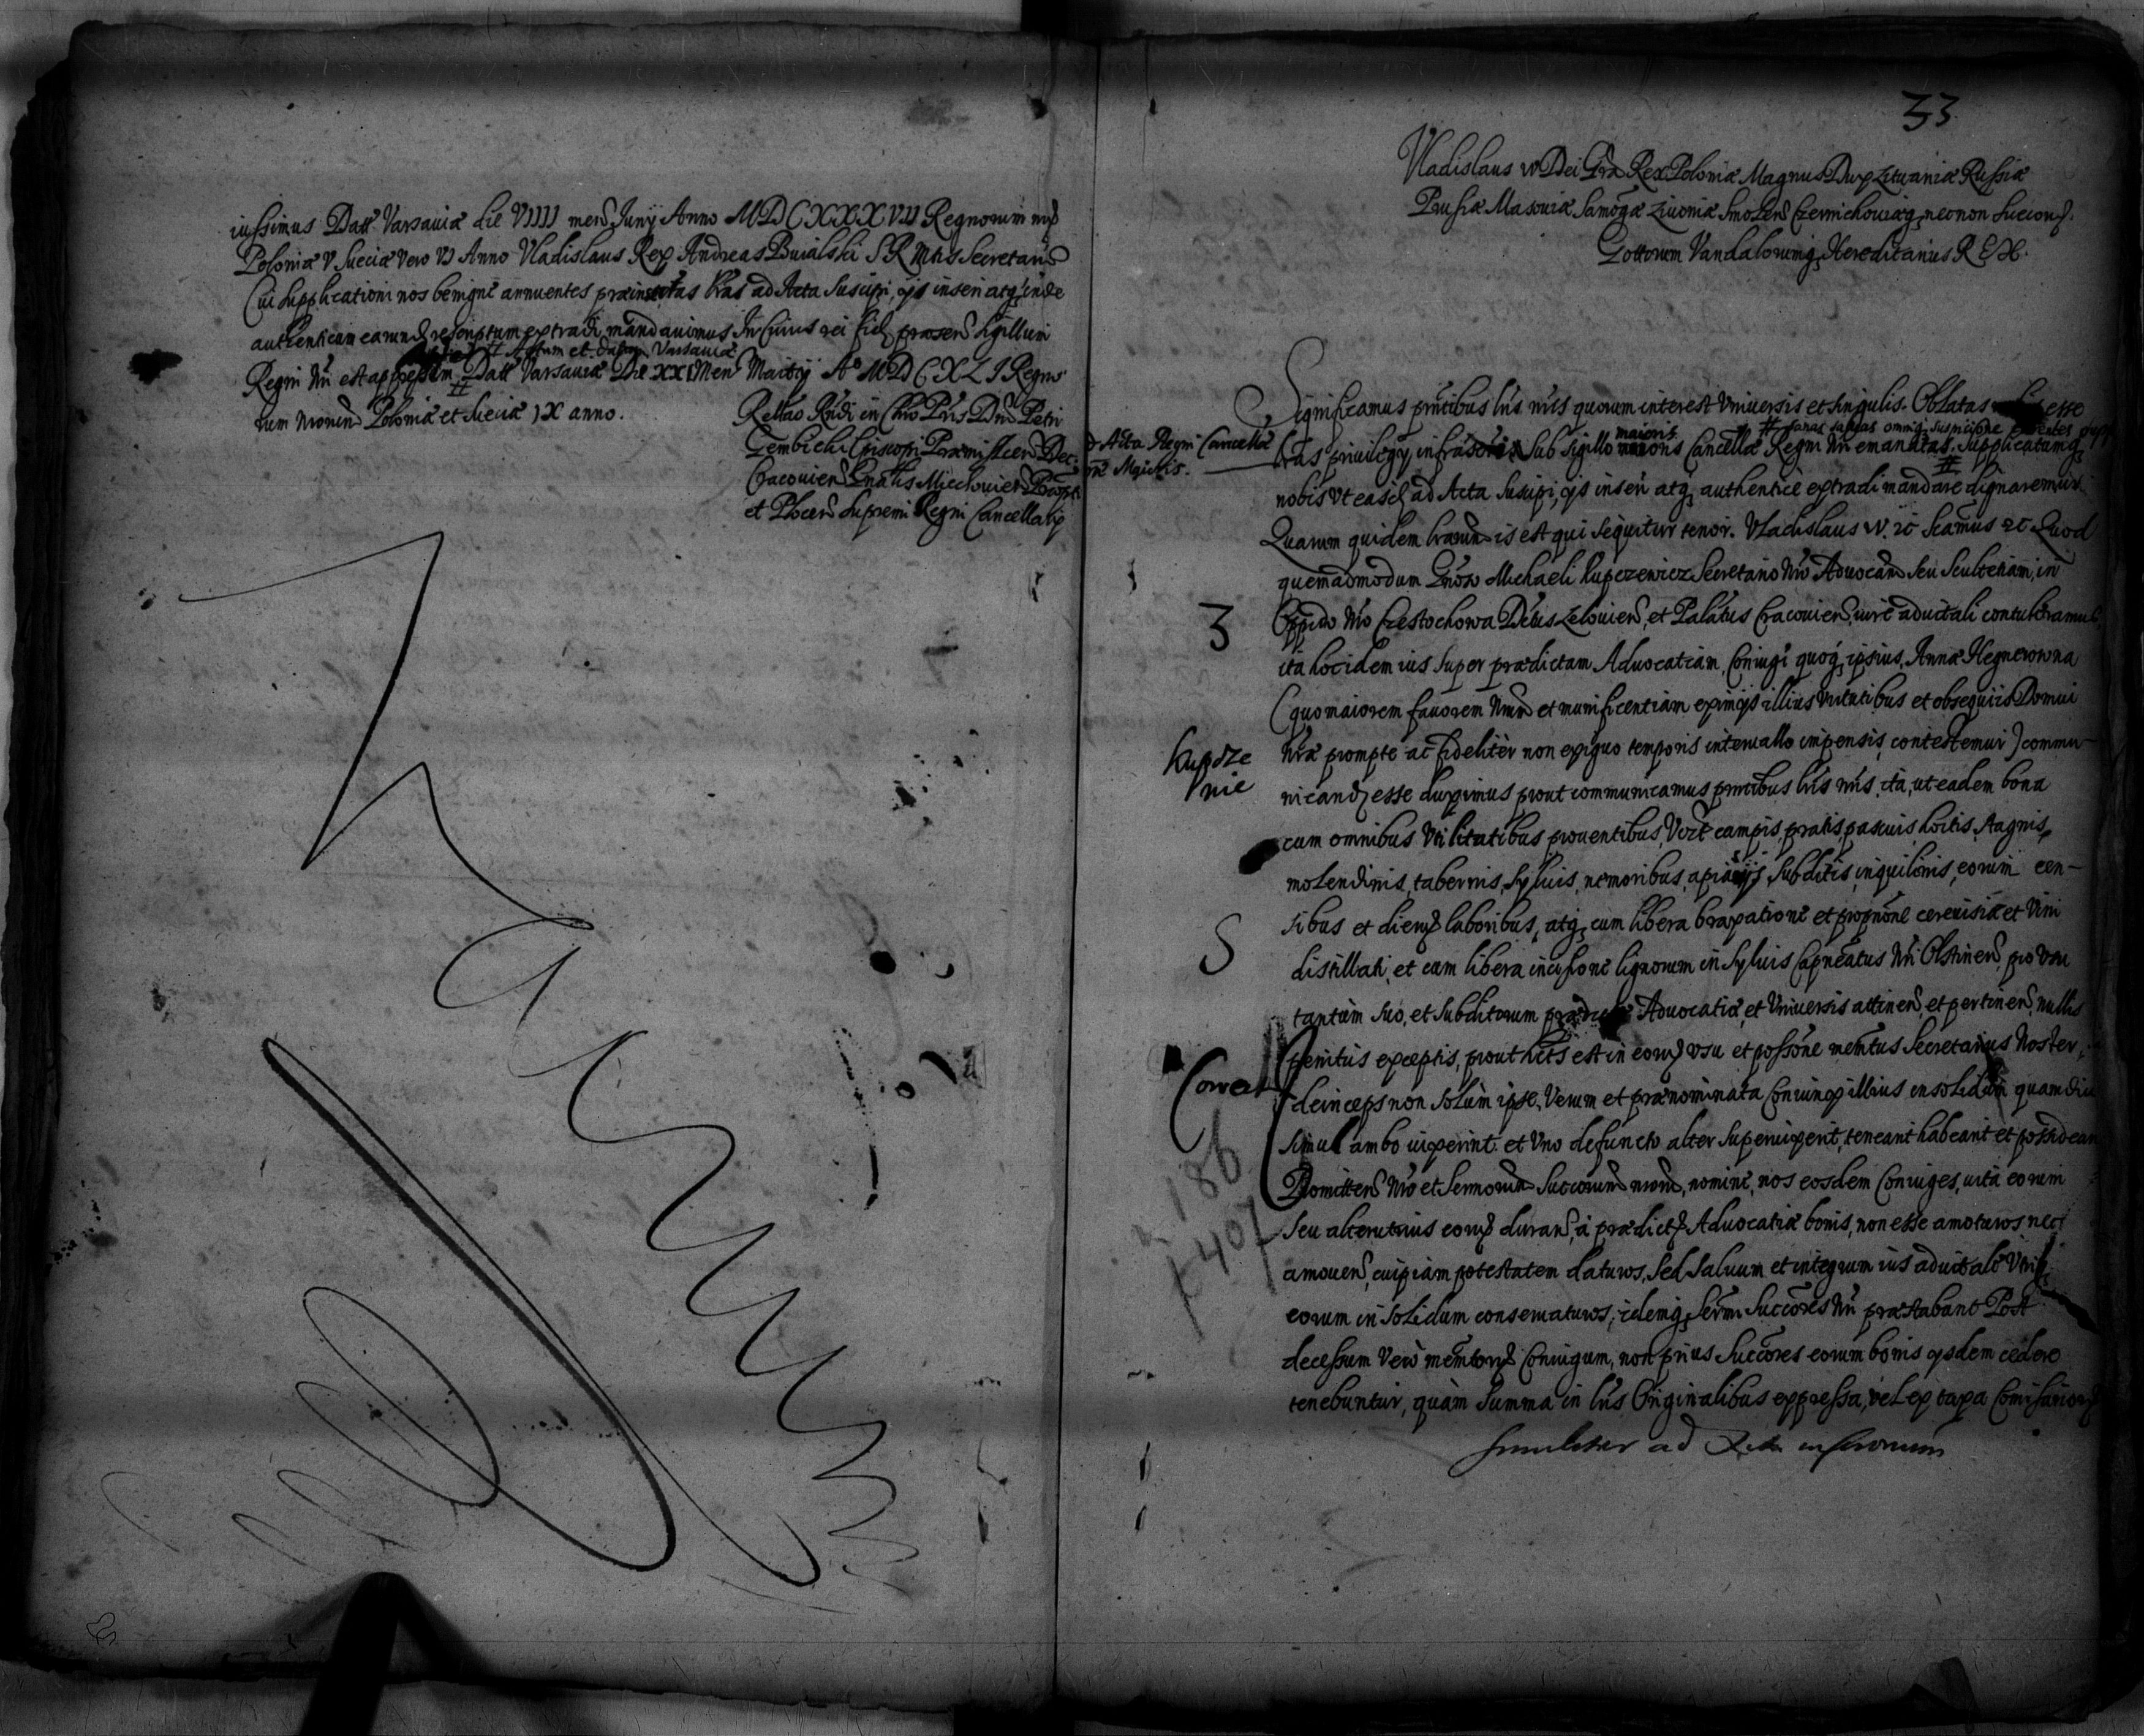 iussimus Datt Varsaviæ die VIIII mens Junÿ Anno MDCXXXVII Regnorum nrõ
Poloniæ V Sueciæ vero VI Anno Vladislaus Rex Andreas Buialski S R Mtis Secretarius
Cui supplicationi nos benignè annuentes præinsertas lras ad Acta suscipi, ijs inseri atq, inde
authenticum earund rescriptum extradi mandavimus In Cuius rei fid præsen sigillum
# Actum et datum Varsaviæ
Regni Nri est appressum Datt Varsaviæ Die XXI Men Martij Ao MDCXLI Regno
rum nrorum Poloniæ et Sueciæ IX anno.
Rellao Rndi in Chro Pris Dni Petri
Gembicki Episcopi Præmislien Dec
Cracovien Gnalis Miechovien Præpt
et Plocen Supremi Regni Cancellarij
33
Vladislaus IV Dei Gra Rex Poloniæ Magnus Dux Lituaniæ Russiæ
Prussiæ Masoviæ Samogæ Livoniæ Smolen Czernichoviæq, necnon Suecorum
Gottorum Vandalorumq, Hereditarius REX.
Significamus pntibus lris nris quorum interest Universis et singulis. Oblatas esse
ad Acta Regni Cancellæ
nræ Mgioris.
maioris
# sanas salvas omniq, suspicione carentes
lras privilegij infrascripti sub sigillo Cancellæ Regni Nri emanatas. Supplicatumq,
nobis ut easd ad Acta suscipi, ijs inseri atq, authenticè extradi mandare dignaremur.
Quarum quidem lrarum is est qui sequitur tenor. Vladislaus IV. ic Scamus ic Quod
quemadmodum Gnoso Michaeli Kupczewicz Secretario Nro Advocam seu Scultetiam, in
3
Oppido Nro Czestochowa Dctus Lelovien, et Palatus Cracovien, iure advitali contuleramus
ita hoc idem ius super prædictam Advocatiam, Coniugi quoq, ipsius, Annæ Hegnerowna
(quo maiorem favorem Nrum et munificentiam eximijs illius virtutibus et obsequiis Domui
Kupcze
nie
Nræ promptè ac fideliter non exiguo temporis intervallo impensis, contestemur) commu-
nicand esse duximus prout communicamus pntibus lris nris, ità, ut eadem bona
cum omnibus utilitatibus proventibus, vnt campis, pratis, pascuis, hortis, stagnis,
molendinis, tabernis, sylvis, nemoribus, apiarijs, subditis, inquilinis, eorum cen-
S
sibus et diernis laboribus, atq, cum libera braxatione et propinõne cerevisiæ et vini
distillati, et cum libera incisione lignorum in sylvis Capneatus Nri Olstinen, pro usu
tantum suo, et subditorum prædictæ Advocatiæ, et Universis attinen, et pertinen, nullis
penitus exceptis, prout hcts est in eorum usu et possõne memtus Secretarius Noster,
Correct
deinceps non solùm ipse, Verum et prænominata Coniunx illius insolidum quamdiu
simul ambo vixerint et Uno defuncto alter supervixerit, teneant habeant et possideant
186
f 407
Promitten Nro et Sermorum Succorum nrorum, nomine, nos eosdem Coniuges, vita eorum
seu alterutrius eorum duran, à prædictæ Advocatiæ bonis, non esse amoturos nec
amoven, cuipiam potestatem daturos, sed salvum et integrum ius advitale Utriq,
eorum insolidum conservaturos; idemq, Sermi Succores Nri præstabunt Post
decessum Verò memtorum Coniugum, non prius Succores eorum bonis ijsdem cedere
tenebuntur, quàm summa in lris Originalibus expressa, vel ex taxa Comissariorum
similiter ad